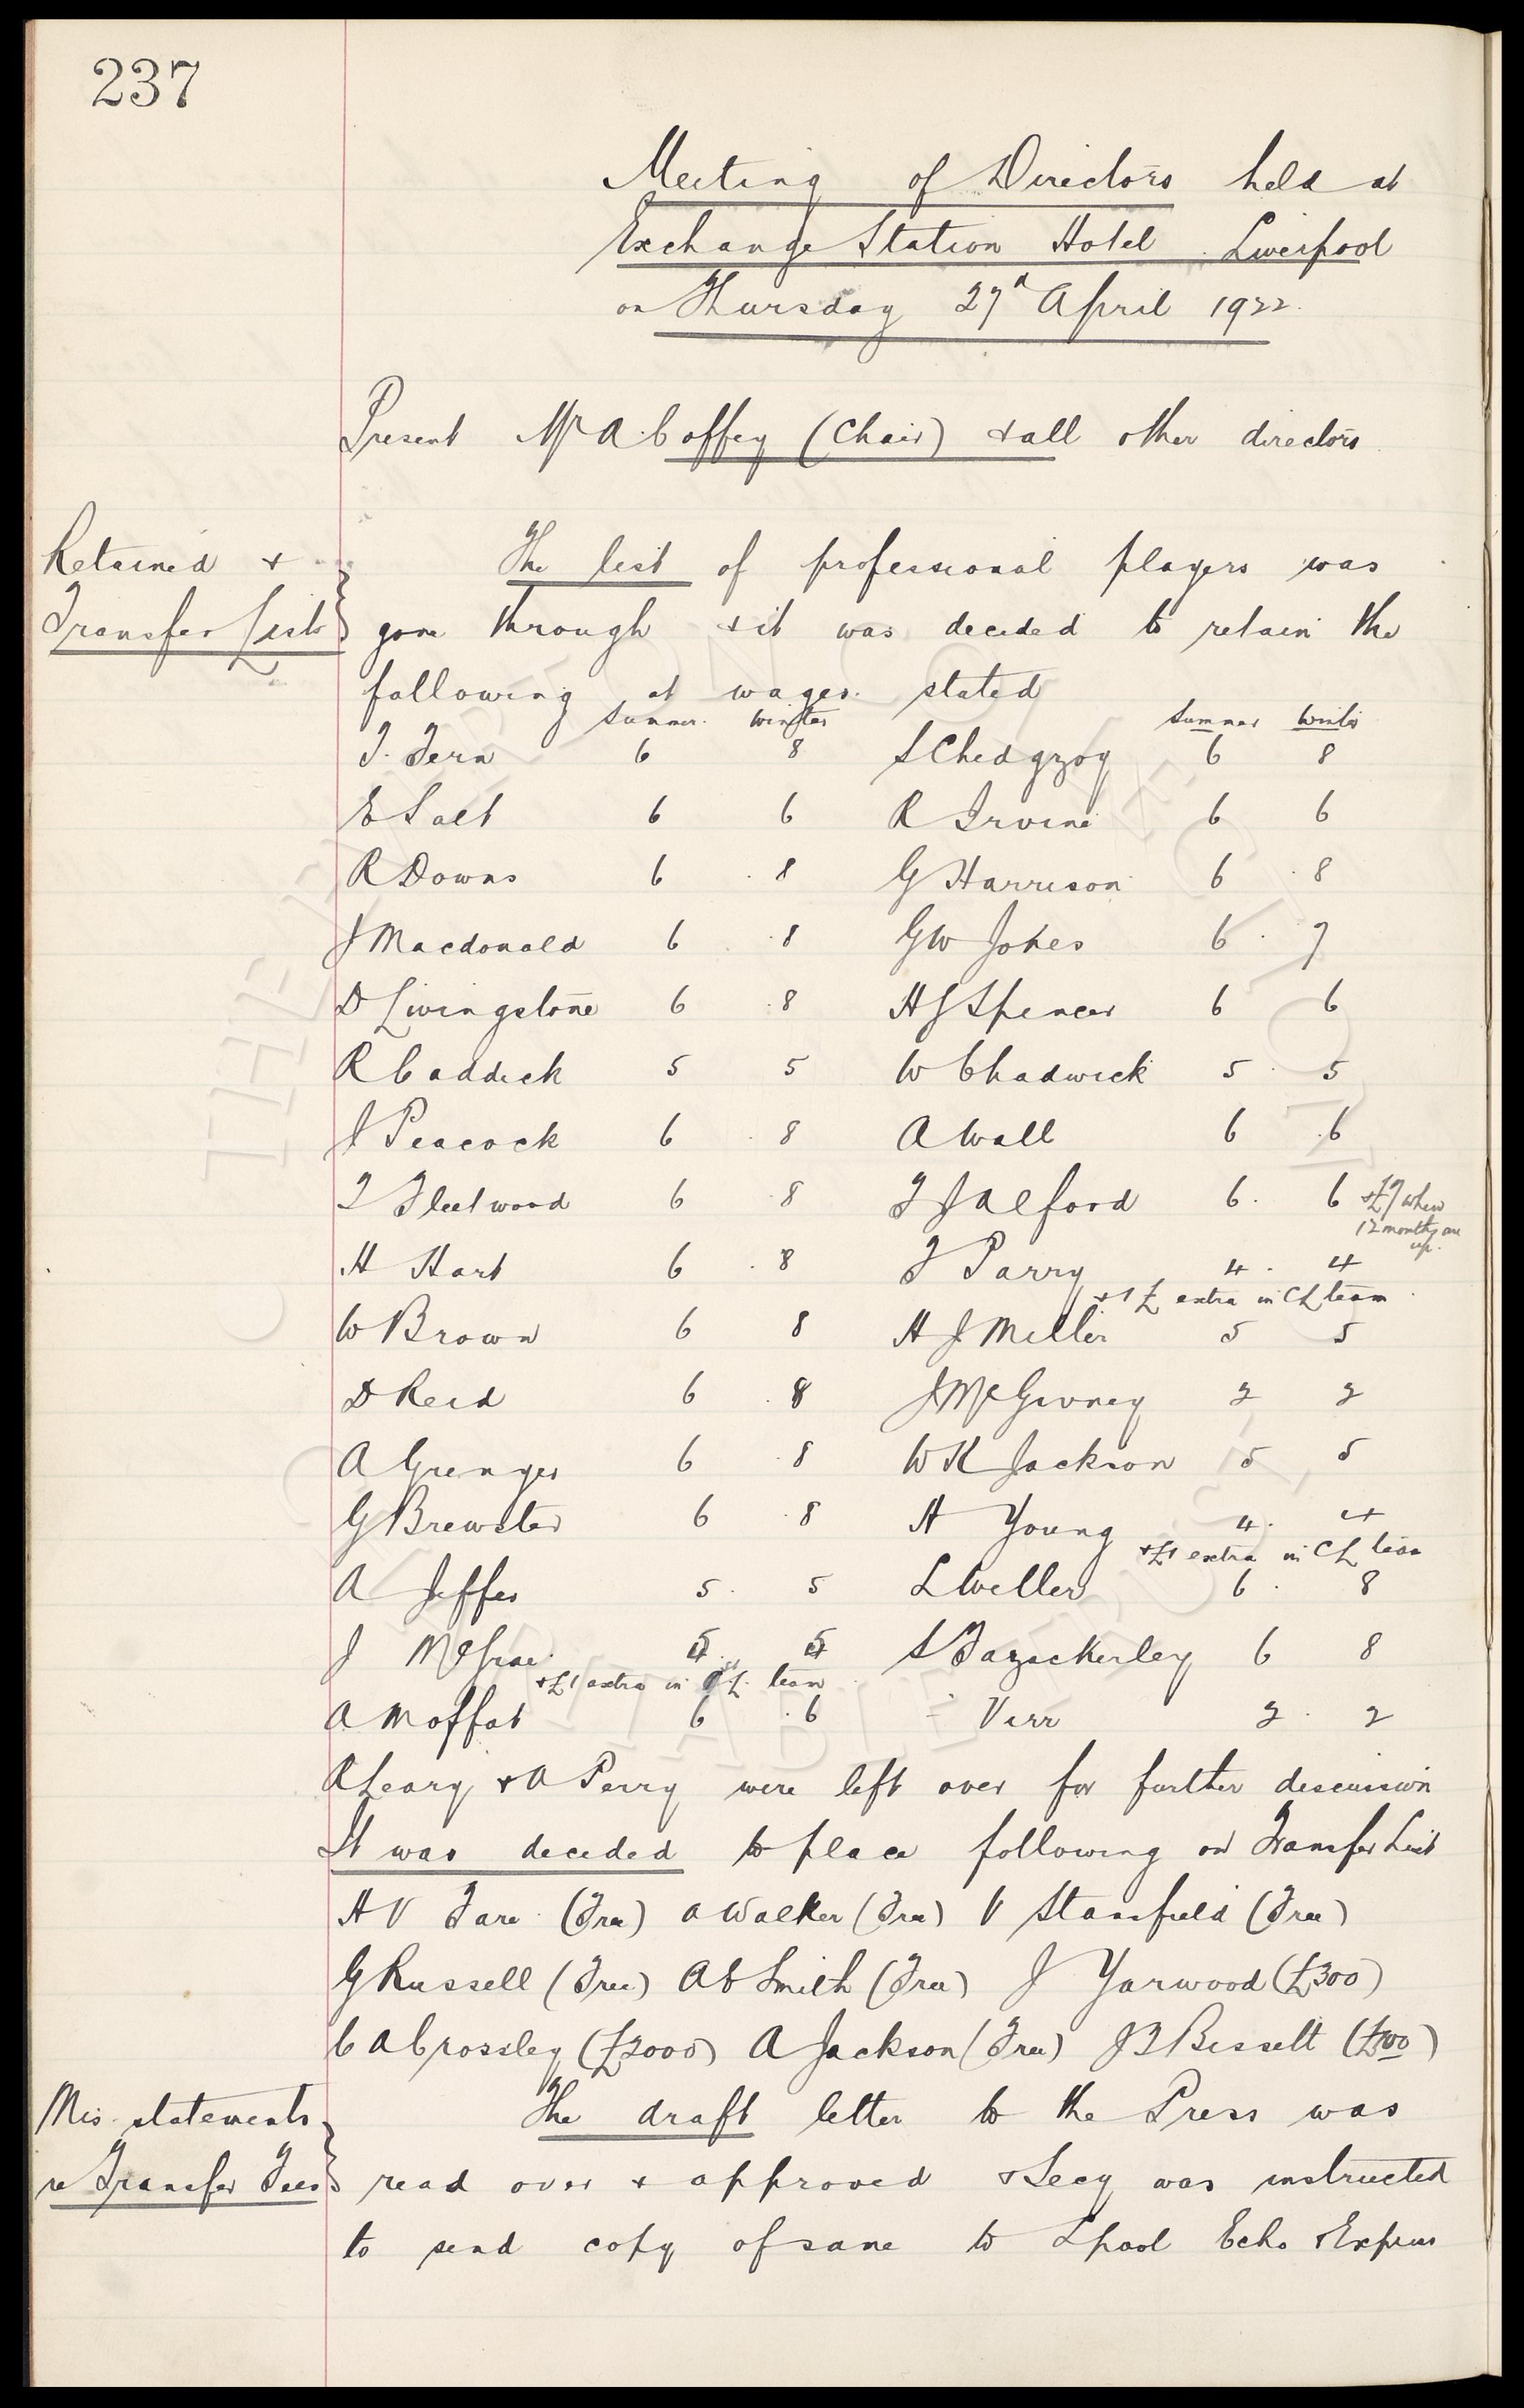 237
Meeting of Directors held at
Exchange Station Hotel Liverpool
on Thursday 27th April 1922.
Present Mr A. Coffey (Chair) & all other directors
Retained & Transfer List
The list of professional players was
gone through & it was decided to retain the
following at wages stated
Summer. Winter Summer Winter
T. Fern 6 8 S Chedgzoy 6 8
E Salt 6 6 R Irvine 6 6
R Downs 6 8 G Harrison 6 8
J Macdonald 6 8 GW Jones 6 7
D Livingstone 6 8 H J Spencer 6 6
R Caddick 5 5 W Chadwick 5 5
J Peacock 6 8 A Wall 6 6
T Fleetwood 6 8 F J Alford 6 6 & £7 when
12 months are
up.
H Hart 6 8 F Parry 4 4
+ 1 £ extra in CL team
W Brown 6 8 H J Miller 5 5
D Reid 6 8 J McGivney 2 2
A Grenyer 6 8 W K Jackson 5 5
G Brewster 6 8 H Young 4 4
+ £1 extra in CL team
A Jeffs 5 5 L Weller 6 8
J 5 5 S Fazackerley 6 8
+ £1 extra in team
A Moffat 6 6 - Virr 2 2
A Leary & A Perry were left over for further discussion
It was decided to place following on Transfer List
H V Fare (Free) A Walker (Free) V Stansfield (Free)
G Russell (Free) A E Smith (Free) J Yarwood (£300)
C A Crossley (£2000) A Jackson (Free) J T Bissett (£100)
Mis-statements
re Transfer Fees
The draft letter to the Press was
read over & approved & Secy was instructed
to send copy of same to Lpool Echo & Express